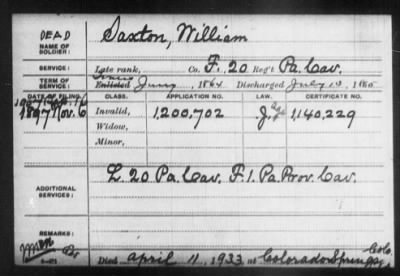 DEAD
NAME OF SOLDIER: Saxton, William
SERVICE: Late rank, Co. F, 20 Reg't Pa. Cav.
TERM OF SERVICE: Enlisted 1864 Discharged July 1865
DATE OF FILING. CLASS. APPLICATION NO. LAW. CERTIFICATE NO.
1897 Nov. 6 Invalid, 1,200,702 J. 1,140,229
Widow,
Minor,
ADDITIONAL SERVICES: L. 20 Pa. Cav. F. 1. Pa. Prov. Cav.
REMARKS:
Died April 11, 1933 at Colorado Springs Colo.